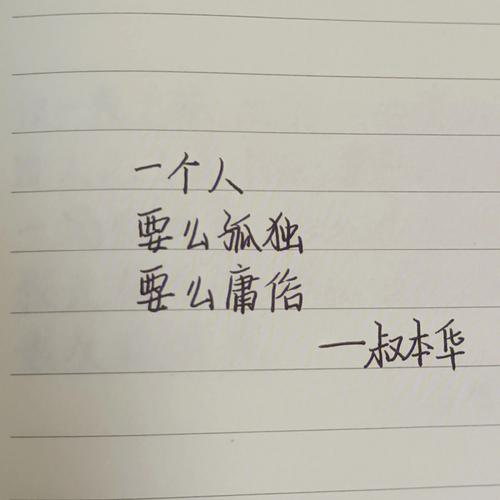 一个人
要么孤独
要么庸俗
—叔本华